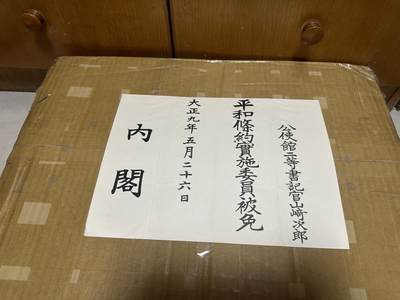 公使館二等書記官山崎次郎
平和條約實施委員被免
大正九年五月二十六日
内閣